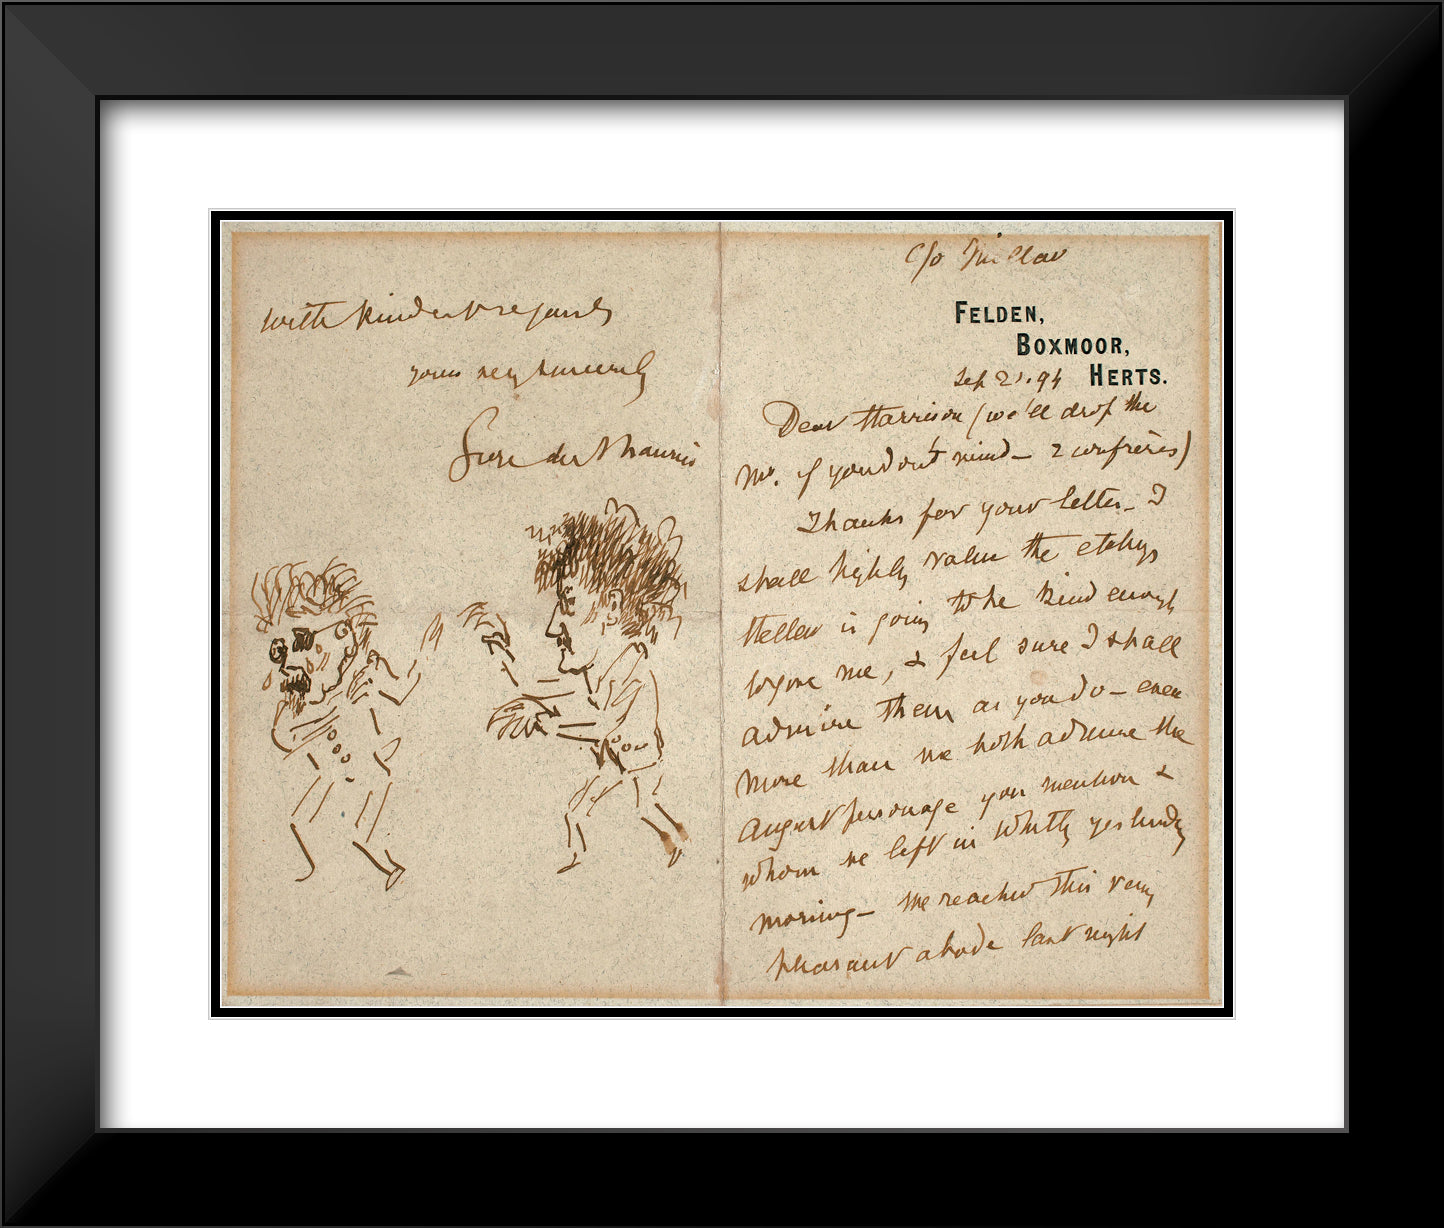 c/o Mellor
FELDEN,
BOXMOOR,
HERTS.
Sep 21. 94
Dear Harrison (we'll drop the
Mr. if you don't mind – 2 confrères)
Thanks for your letter – I
shall highly value the etchings
is going to be kind enough
to give me, & feel sure I shall
admire them as you do – even
more than we both admire the
august personage you mention &
whom we left in Whitby yesterday
morning – We reached this very
pleasant abode last night
with kindest regards
yours very sincerely
du Maurier